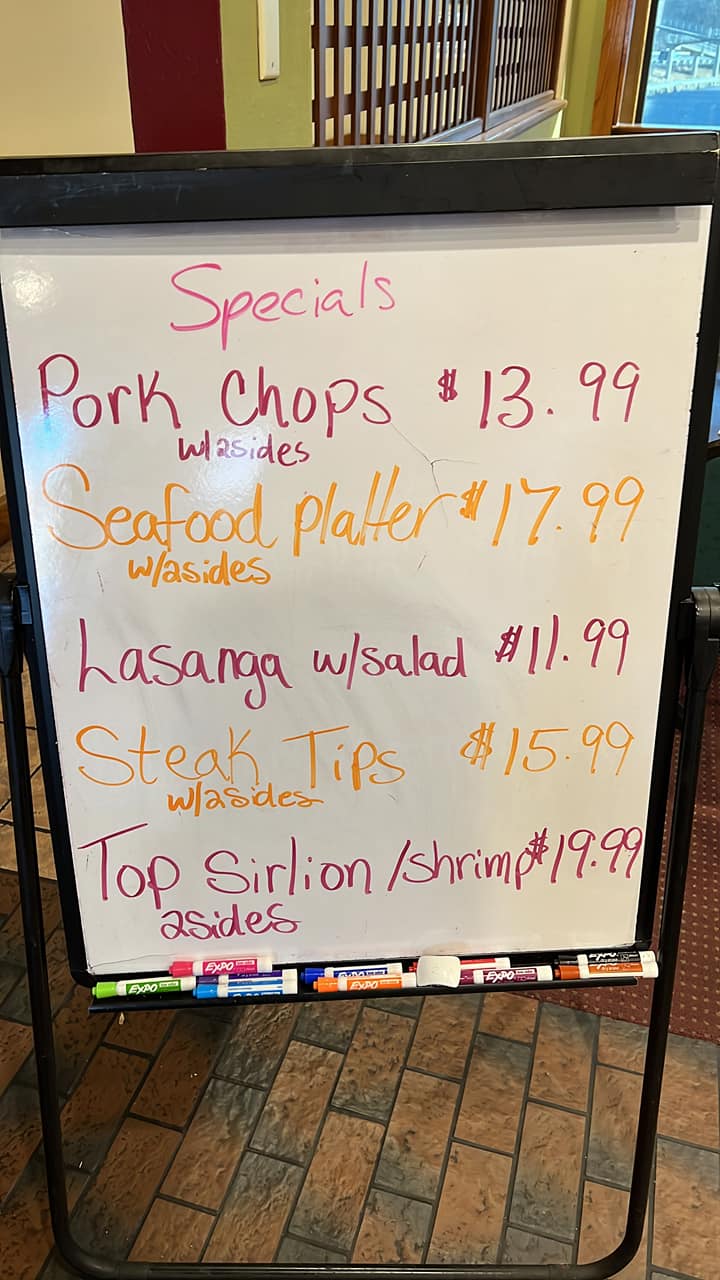 Specials
Pork Chops $13.99
w/2sides
Seafood platter $17.99
w/2sides
Lasanga w/salad $11.99
Steak Tips $15.99
w/2sides
Top Sirlion /shrimp $19.99
2sides
EXPO
EXPO
EXPO
EXPO